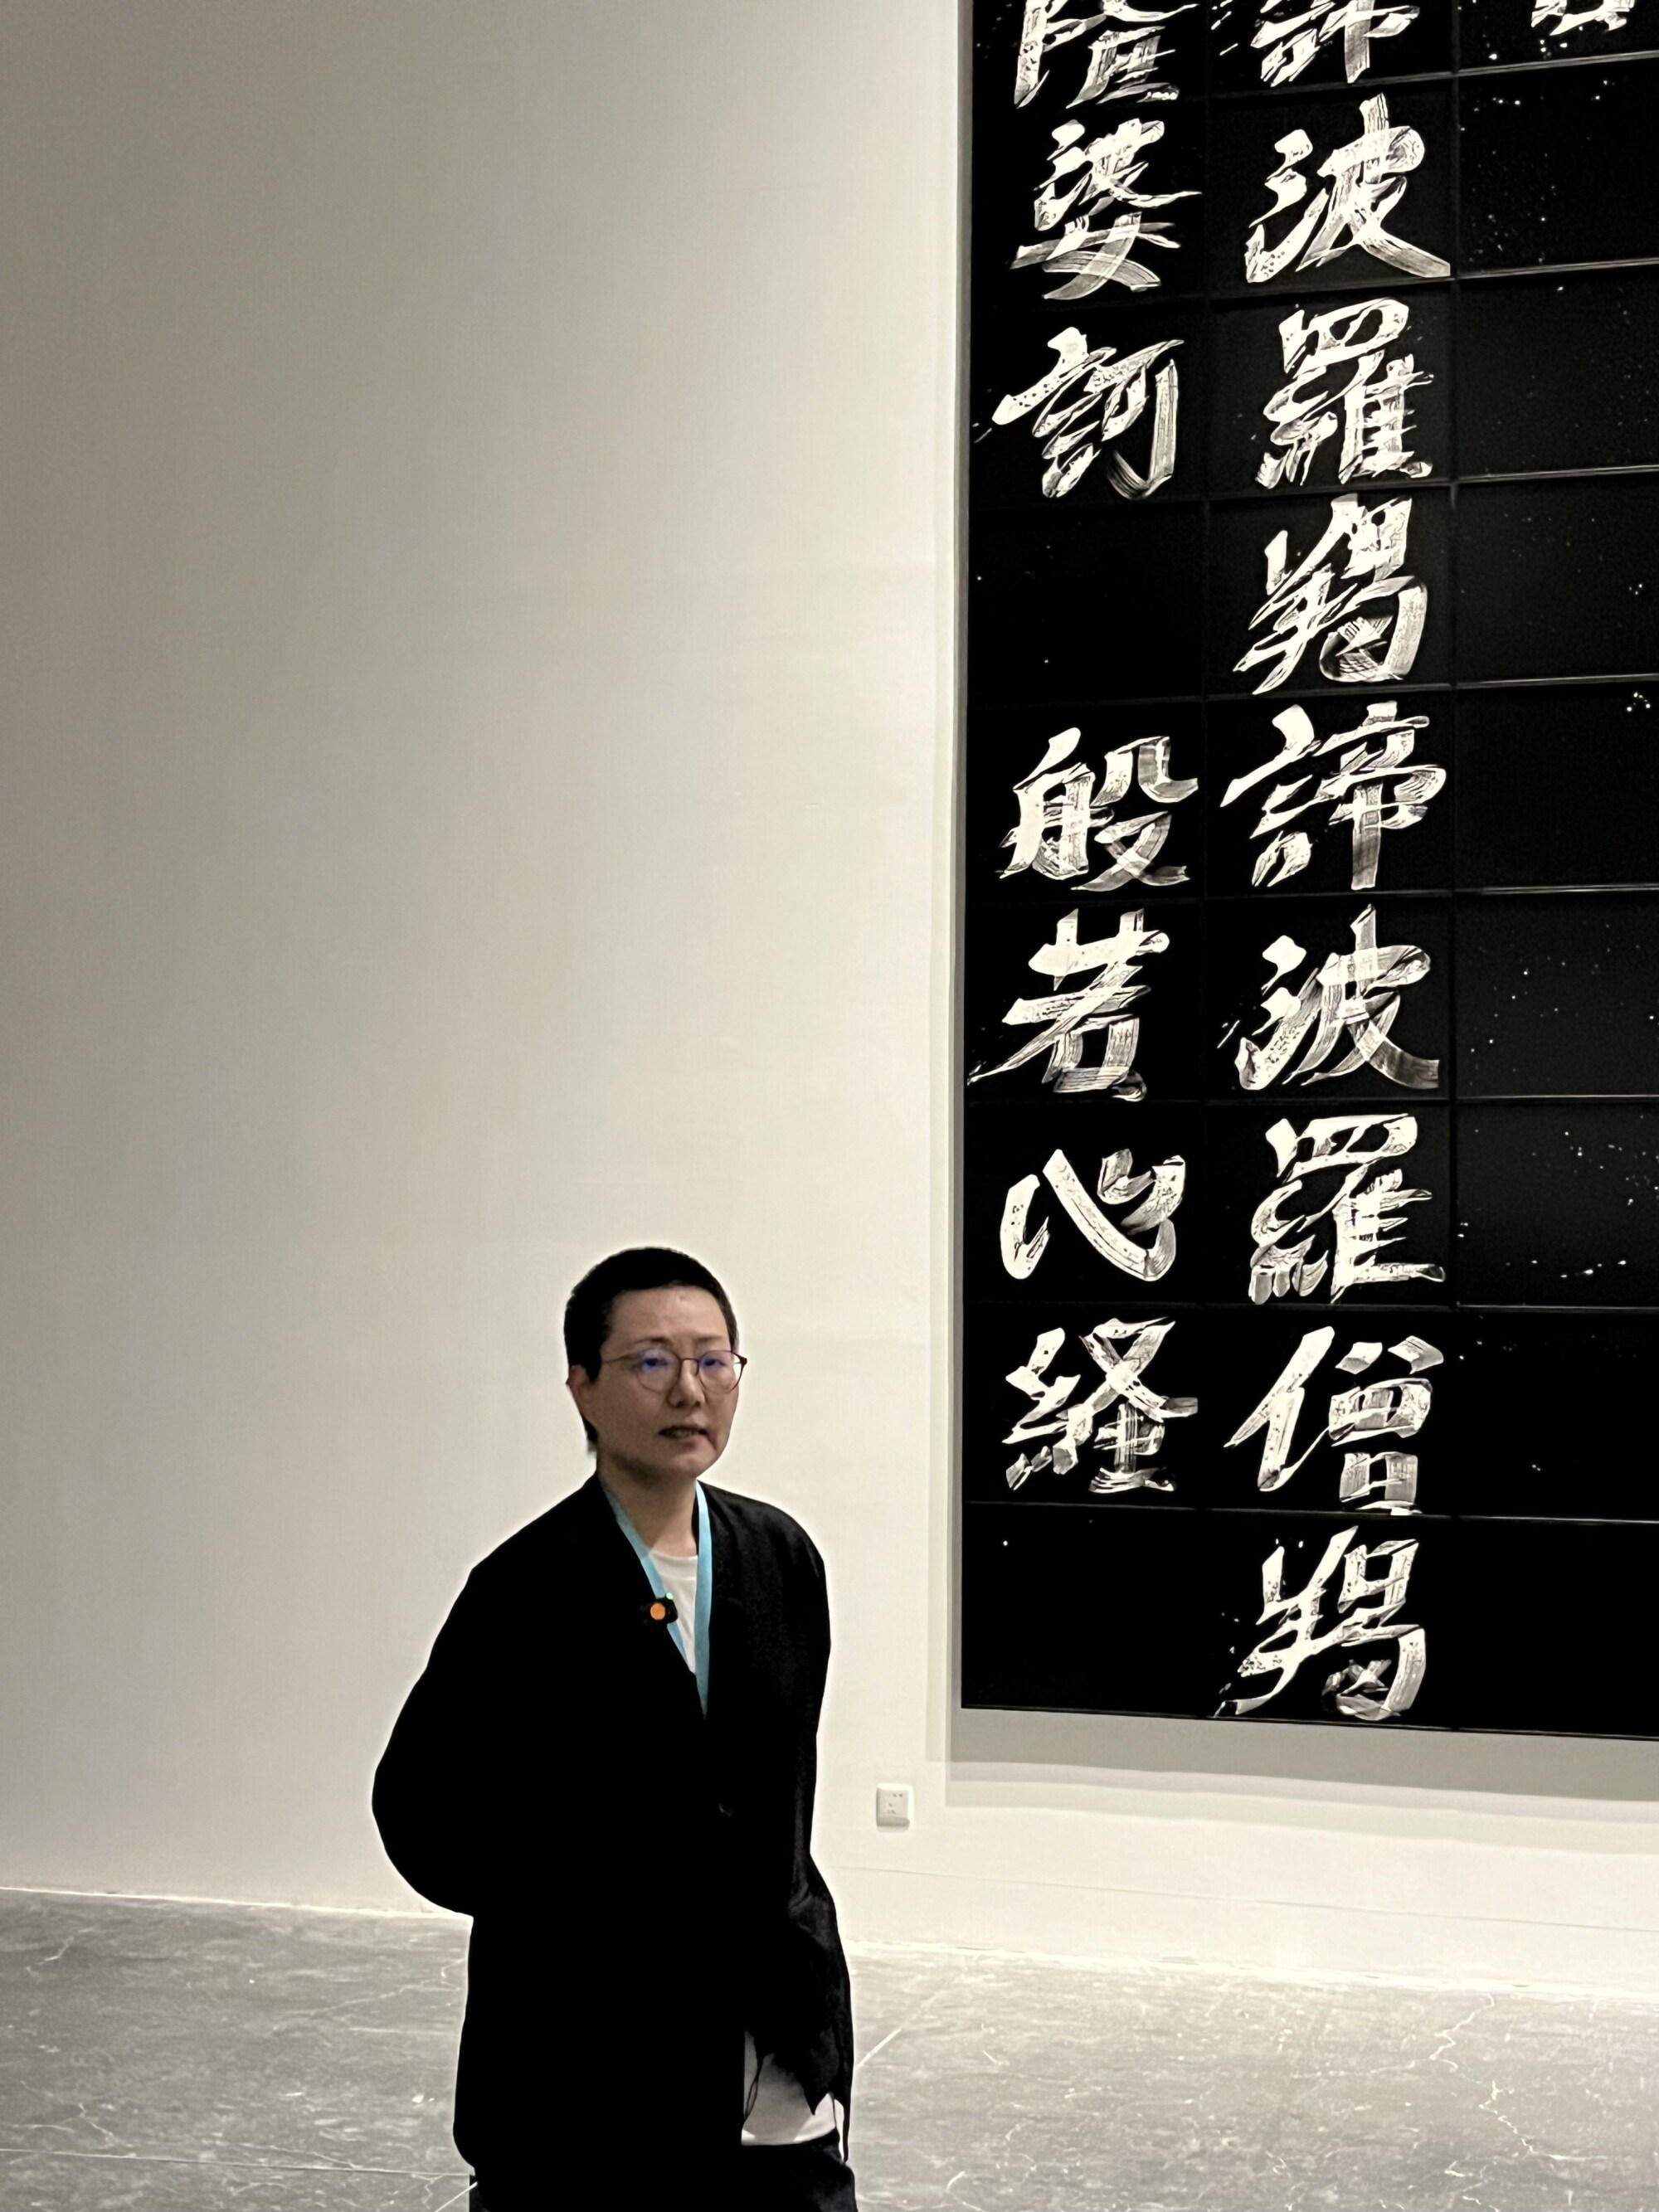 諦波羅羯諦波羅僧羯
薩婆訶 般若心経